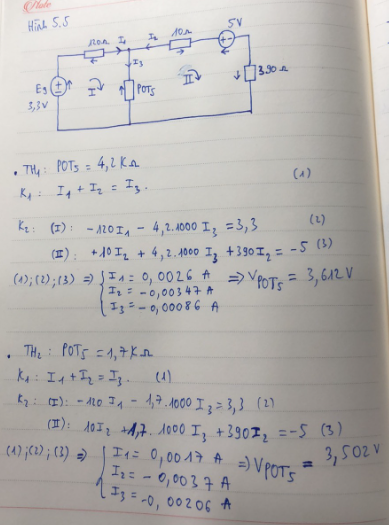 Hình 5.5
120Ω I1 I2 10Ω 5V
I3
Eg
3,3V
I
POT5
II
390Ω
• TH1: POT5 = 4,2 KΩ
K1: I1 + I2 = I3. (1)
K2: (I): -120I1 - 4,2.1000 I3 = 3,3 (2)
(II): +10I2 + 4,2.1000 I3 + 390I2 = -5 (3)
(1);(2);(3) ⇒ { I1 = 0,0026 A ⇒ VPOT5 = 3,612 V
I2 = -0,00347 A
I3 = -0,00086 A
• TH2: POT5 = 1,7 KΩ
K1: I1 + I2 = I3. (1)
K2: (I): -120 I1 - 1,7.1000 I3 = 3,3 (2)
(II): 10I2 + 1,7.1000 I3 + 390I2 = -5 (3)
(1);(2);(3) ⇒ { I1 = 0,0017 A ⇒ VPOT5 = 3,502V
I2 = -0,0037 A
I3 = -0,00206 A